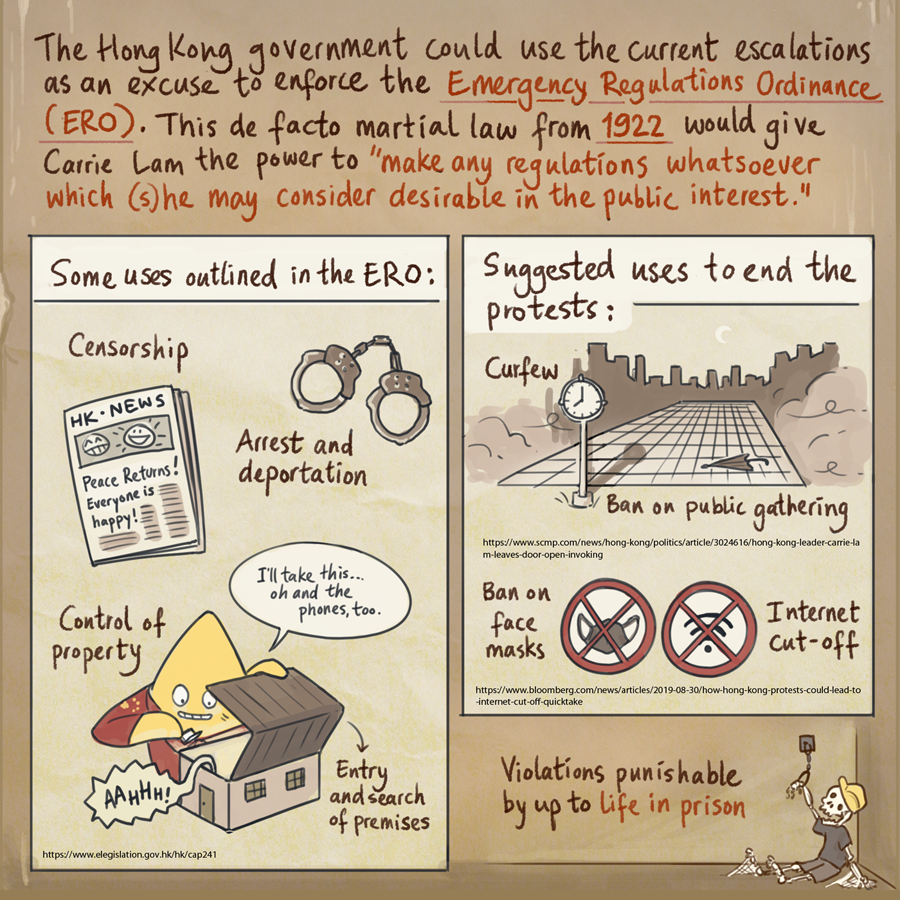 The Hong Kong government could use the current escalations
as an excuse to enforce the Emergency Regulations Ordinance
(ERO). This de facto martial law from 1922 would give
Carrie Lam the power to "make any regulations whatsoever
which (s)he may consider desirable in the public interest."
Some uses outlined in the ERO:
Censorship
HK·NEWS
Peace Returns!
Everyone is
happy!
Arrest and
deportation
I'll take this...
oh and the
phones, too.
Control of
property
AAHHH!
Entry
and search
of premises
https://www.elegislation.gov.hk/hk/cap241
Suggested uses to end the
protests:
Curfew
Ban on public gathering
https://www.scmp.com/news/hong-kong/politics/article/3024616/hong-kong-leader-carrie-la
m-leaves-door-open-invoking
Ban on
face
masks
Internet
cut-off
https://www.bloomberg.com/news/articles/2019-08-30/how-hong-kong-protests-could-lead-to
-internet-cut-off-quicktake
Violations punishable
by up to life in prison